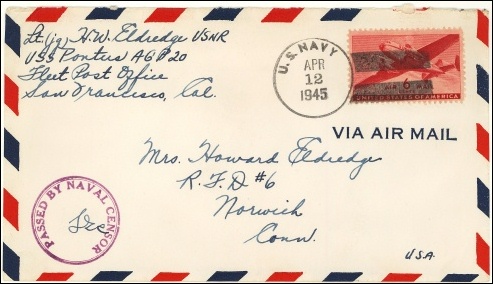 Lt. (jg) H.W. Eldredge USNR
USS Pontus AGP 20
Fleet Post Office
San Francisco, Cal.
U.S. NAVY
APR
12
1945
AIR 6¢ MAIL
UNITED STATES OF AMERICA
VIA AIR MAIL
Mrs. Howard Eldredge
R.F.D #6
Norwich
Conn.
U.S.A.
PASSED BY NAVAL CENSOR